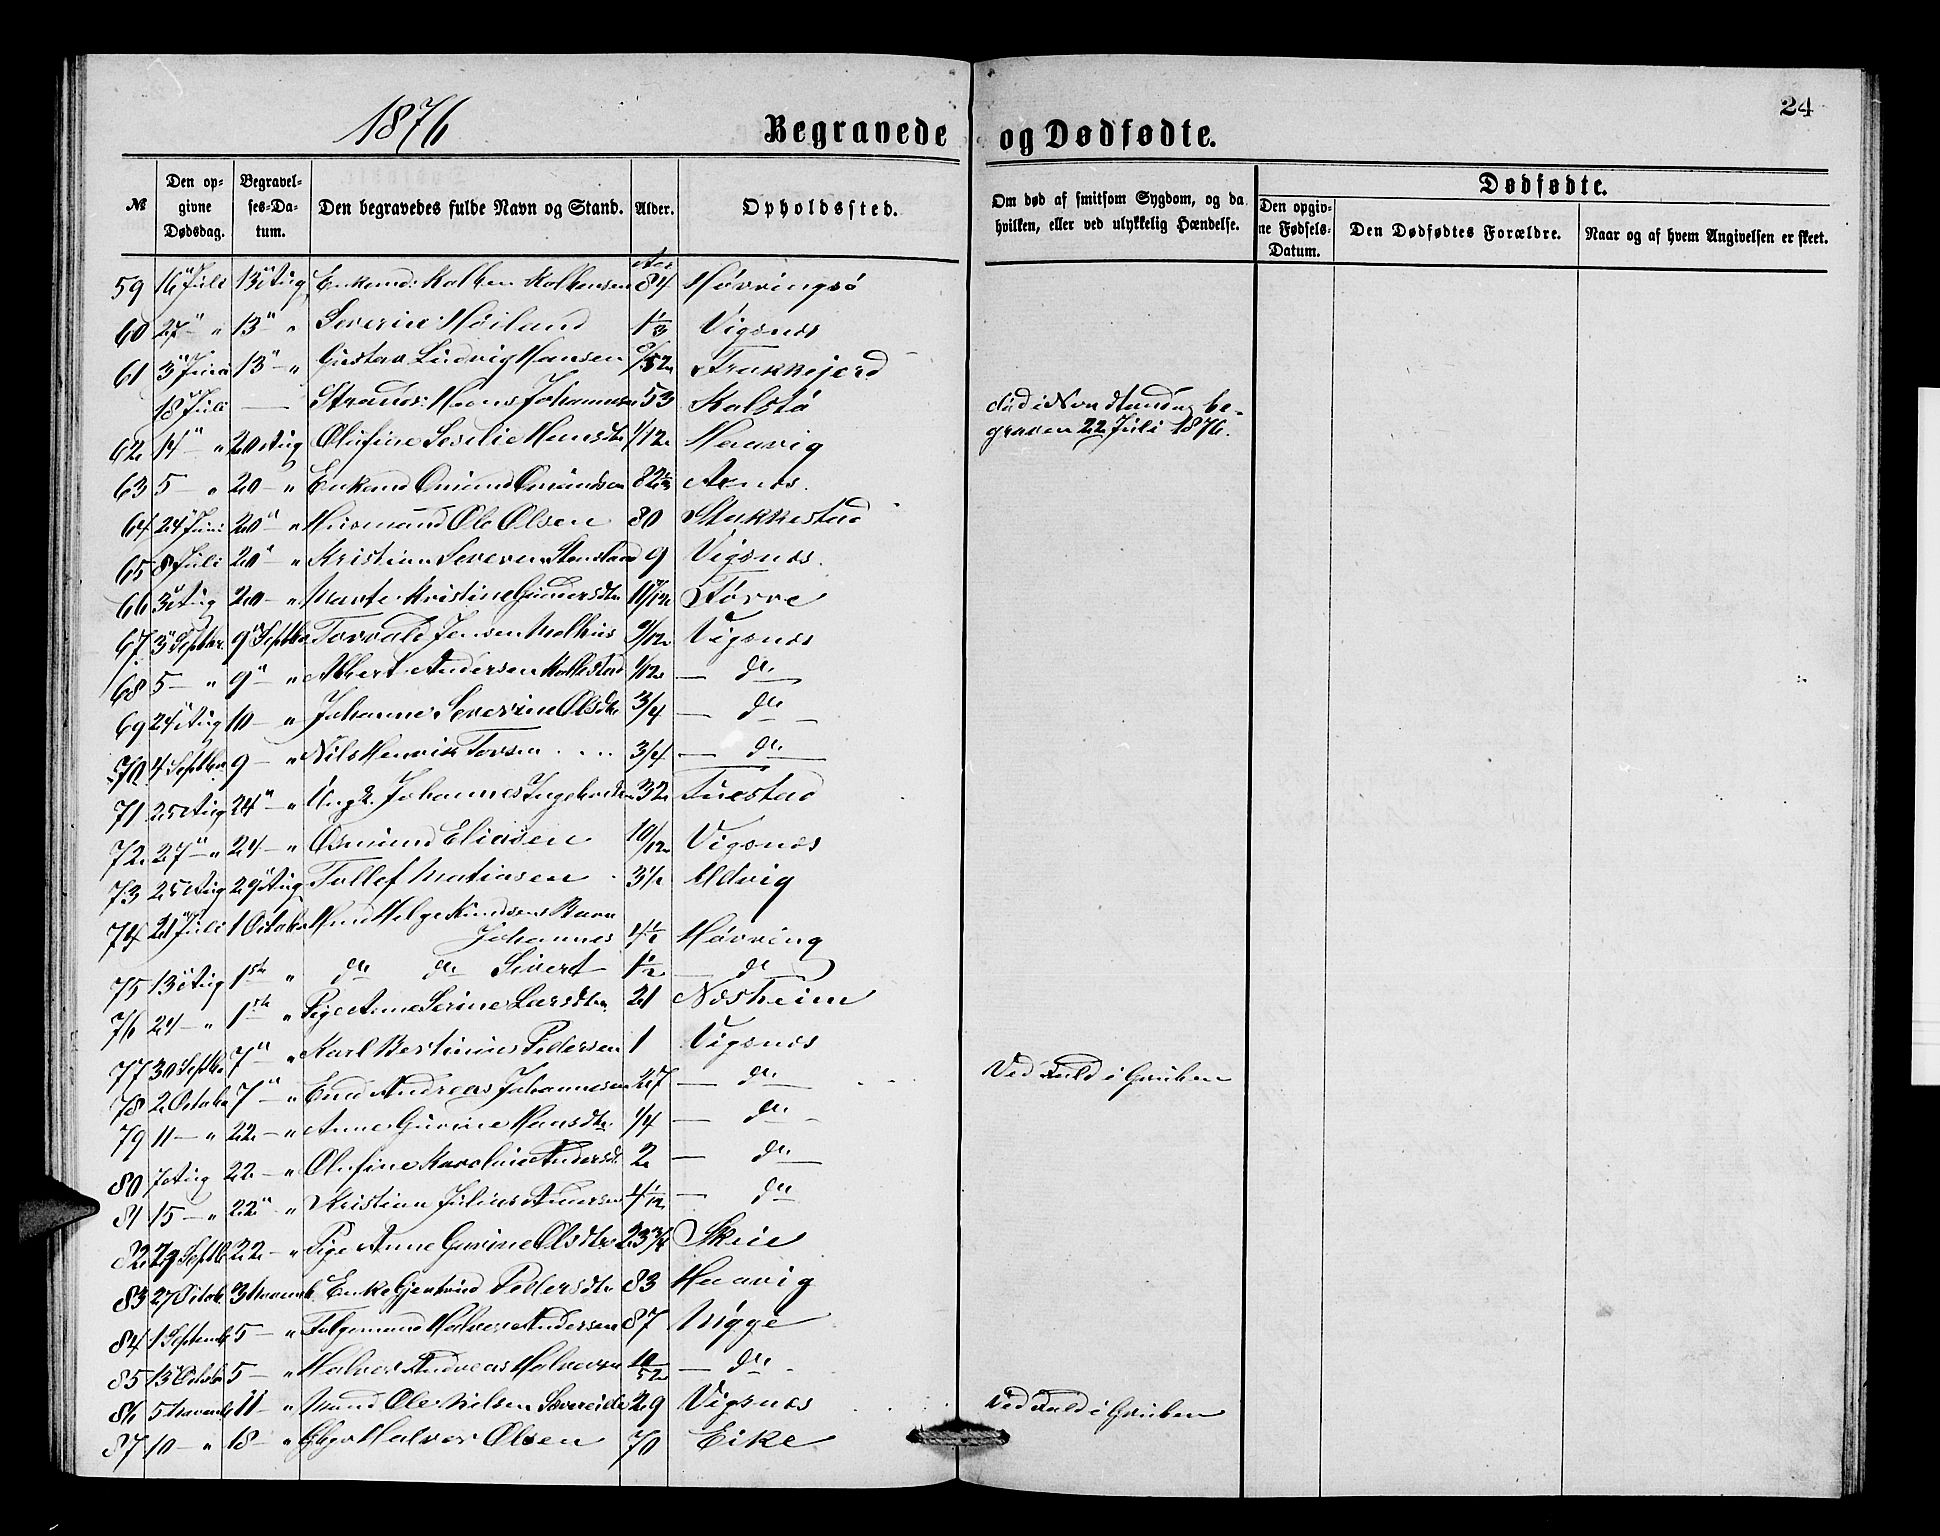 1876
Begravede og Dødfødte.
24
№
Den opgivne Dødsdag.
Begravelses-Datum.
Den begravedes fulde Navn og Stand.
Alder.
Opholdssted.
Om død af smitsom Sygdom, og da hvilken, eller ved ulykkelig Hændelse.
Dødfødte.
Den opgivne Fødsels-Datum.
Den Dødfødtes Forældre.
Naar og af hvem Angivelsen er skeet.
59 16 Juli 13 Aug Enkemd: 84 Høvringsø
60 27 " 13 " Severine Høiland 1 1/3 Vigsnæs
61 3 Juni 13 " Gustav Ludvig Hansen /52
18 Juli — Hans Johannesen 53 Kalstø
begraven 22 Juli 1876.
62 14 " 20 Aug Olufine Hansdtr 1/12 Haavig
63 5 " 20 " Enkemd Omund Omundsen 82
64 24 Juni 20 " Husmand Ole Olsen 80 Stakkestad
65 8 Juli 20 " Kristian Severin 9 Vigsnæs.
66 3 Aug 20 " Marte Kristine Gunnersdtr Ferve
67 3 Septbr. 9 Septbr Torvald Jensen 9/12 Vigsnæs
68 5 — " 9 " Albert Andersen 1/12 — do —
69 24 Aug 10 — " Johanne Severine Olsdtr 3/4 — do —
70 4 Septbr 9 — " Nils Henrik Torsen 3/4 — do —
71 25 Aug 24 " Ungk. Johannes 32 Tuestad
72 27 — " 24 — " Osmund Eliasen 10/12 Vigsnæs
73 25 Aug 29 Aug Tollef Matiasen 3 1/2 Udvig
74 21 Juli 1 Octobr Helge Knudsens Barn
Johannes 4 1/2 Høvring
75 13 Aug 1ste " do do Sivert 1 1/2 — do
76 24 — " 1ste " Pige Anne Serine Larsdtr. 21 Næsheim
77 30 Septbr 7 " Karl Bertinius Pedersen 1 Vigsnæs
78 2 Octobr 7 — " Andreas Johannesen 27 — do — Ved Fald i Gruben
79 11 — " 22 — " Anne Gurine Hansdtr. 1/4 — do —
80 7 Aug 22 — " Olufine Karoline Andersdtr 2 — do —
81 15 — " 22 " Kristian Julius Andersen — do
82 29 Septb 22 — " Pige Anne Gurine Olsdtr 23 3/4 Skeie
83 27 Octob. 3 Novemb. Enke Gjertrud Pedersdtr 83 Haavig
84 1 Septemb 5 — " Halvor Andersen 87 Nygge
85 13 Octobr 5 — " Halvor Andreas Halvorsen 10/52 — do —
86 5 Novemb 11 — " Mand Ole Nilsen 29 Vigsnæs Ved Fald i Gruben
87 10 — " 18 — " Halvor Olsen 70 Eike